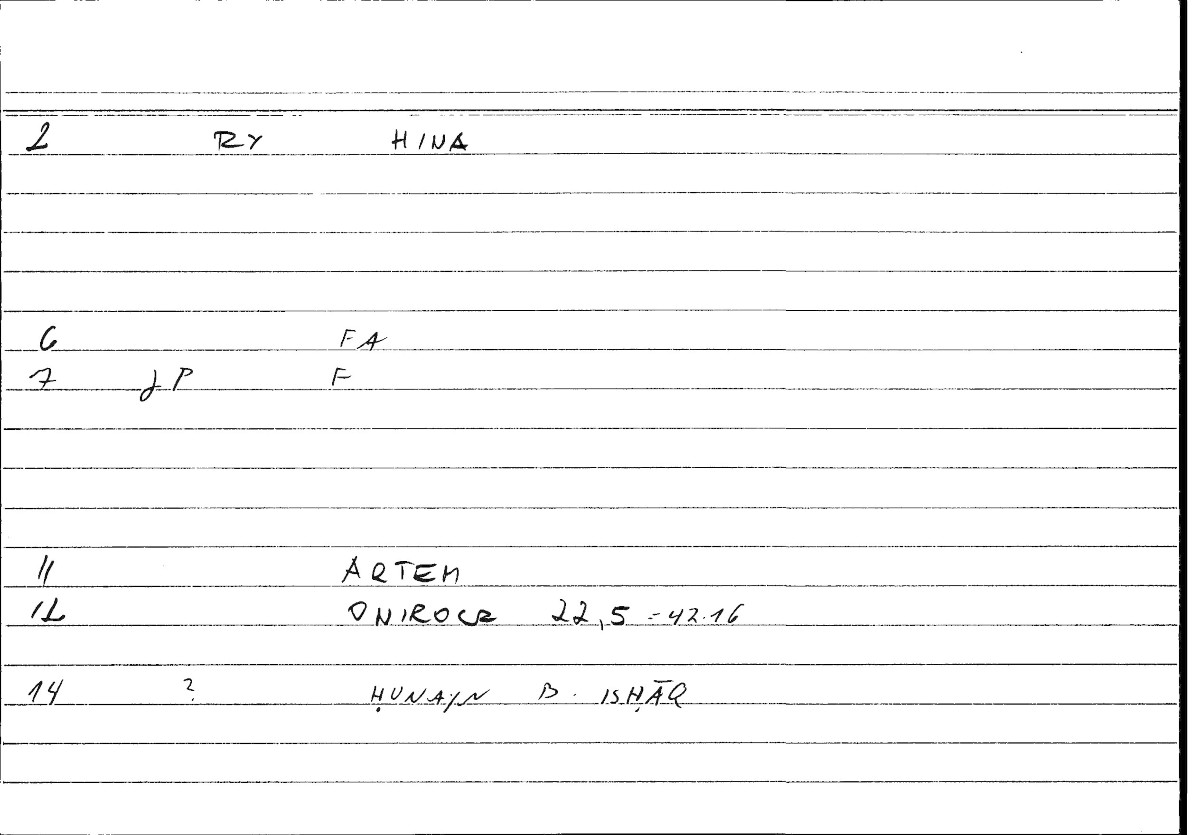 2 RY HINA
6 FA
7 JP F
11 ARTEM
12 ONIROCR 22,5 = 42.16
14 ? ḤUNAYN B. ISḤĀQ